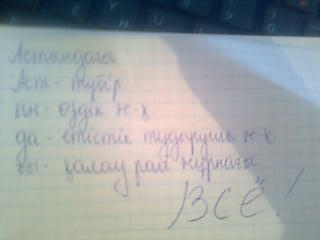 Астындағы
Аст - түбір
ын - өздік ж-қ
да - етістік тудырушы ж-қ
ғы - қалау рай жұрнағы
ВСЁ!